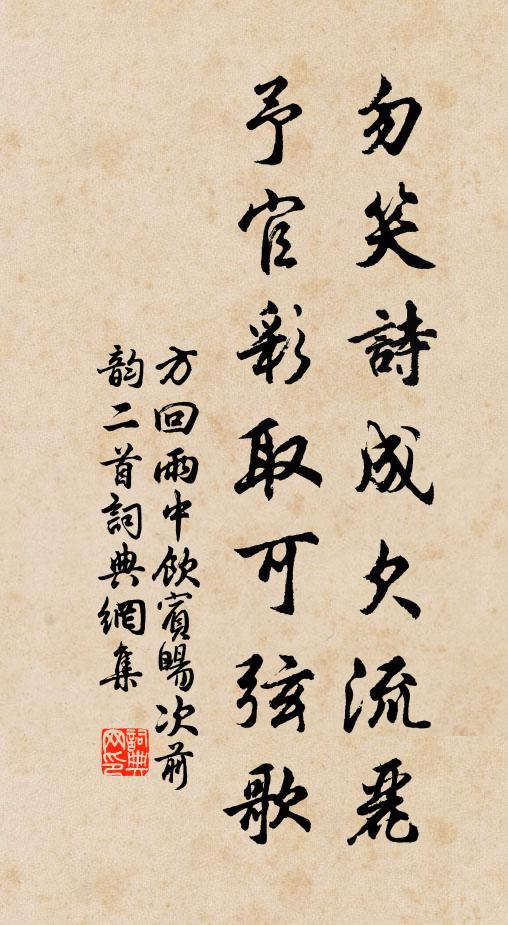 勿笑詩成欠流麗
予官彩取可弦歌
方回雨中飲賓暘次前
韵二首詞典網集
詞典
网印